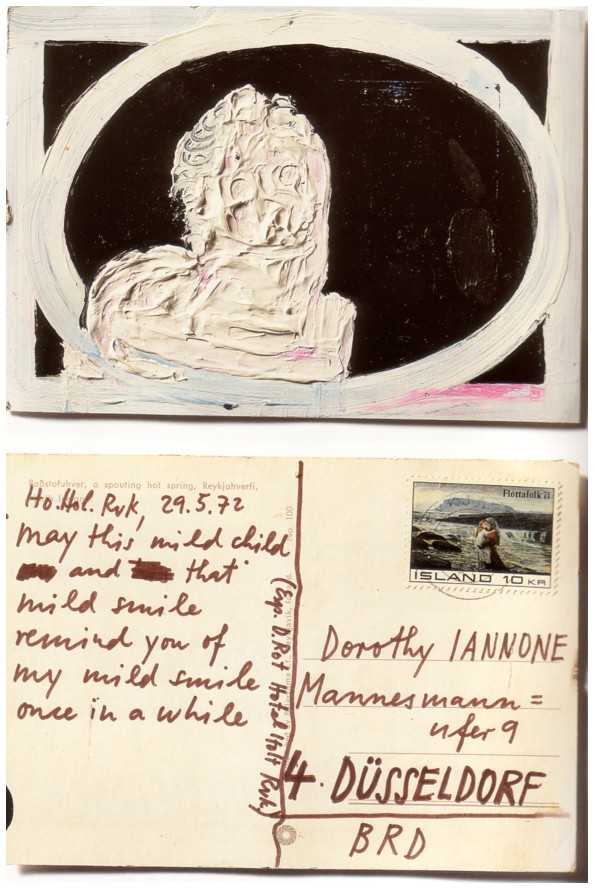 Baðstofuhver, a spouting hot spring, Reykjahverfi,
Ho.Hol. Rvk, 29.5.72
may this mild child
and that
mild smile
remind you of
my mild smile
once in a while
No. 100
(Exp. D. Rot Hotel Holt Rvk)
Flóttafólk 71
ÍSLAND 10 KR
Dorothy IANNONE
Mannesmann=
ufer 9
4. DÜSSELDORF
BRD